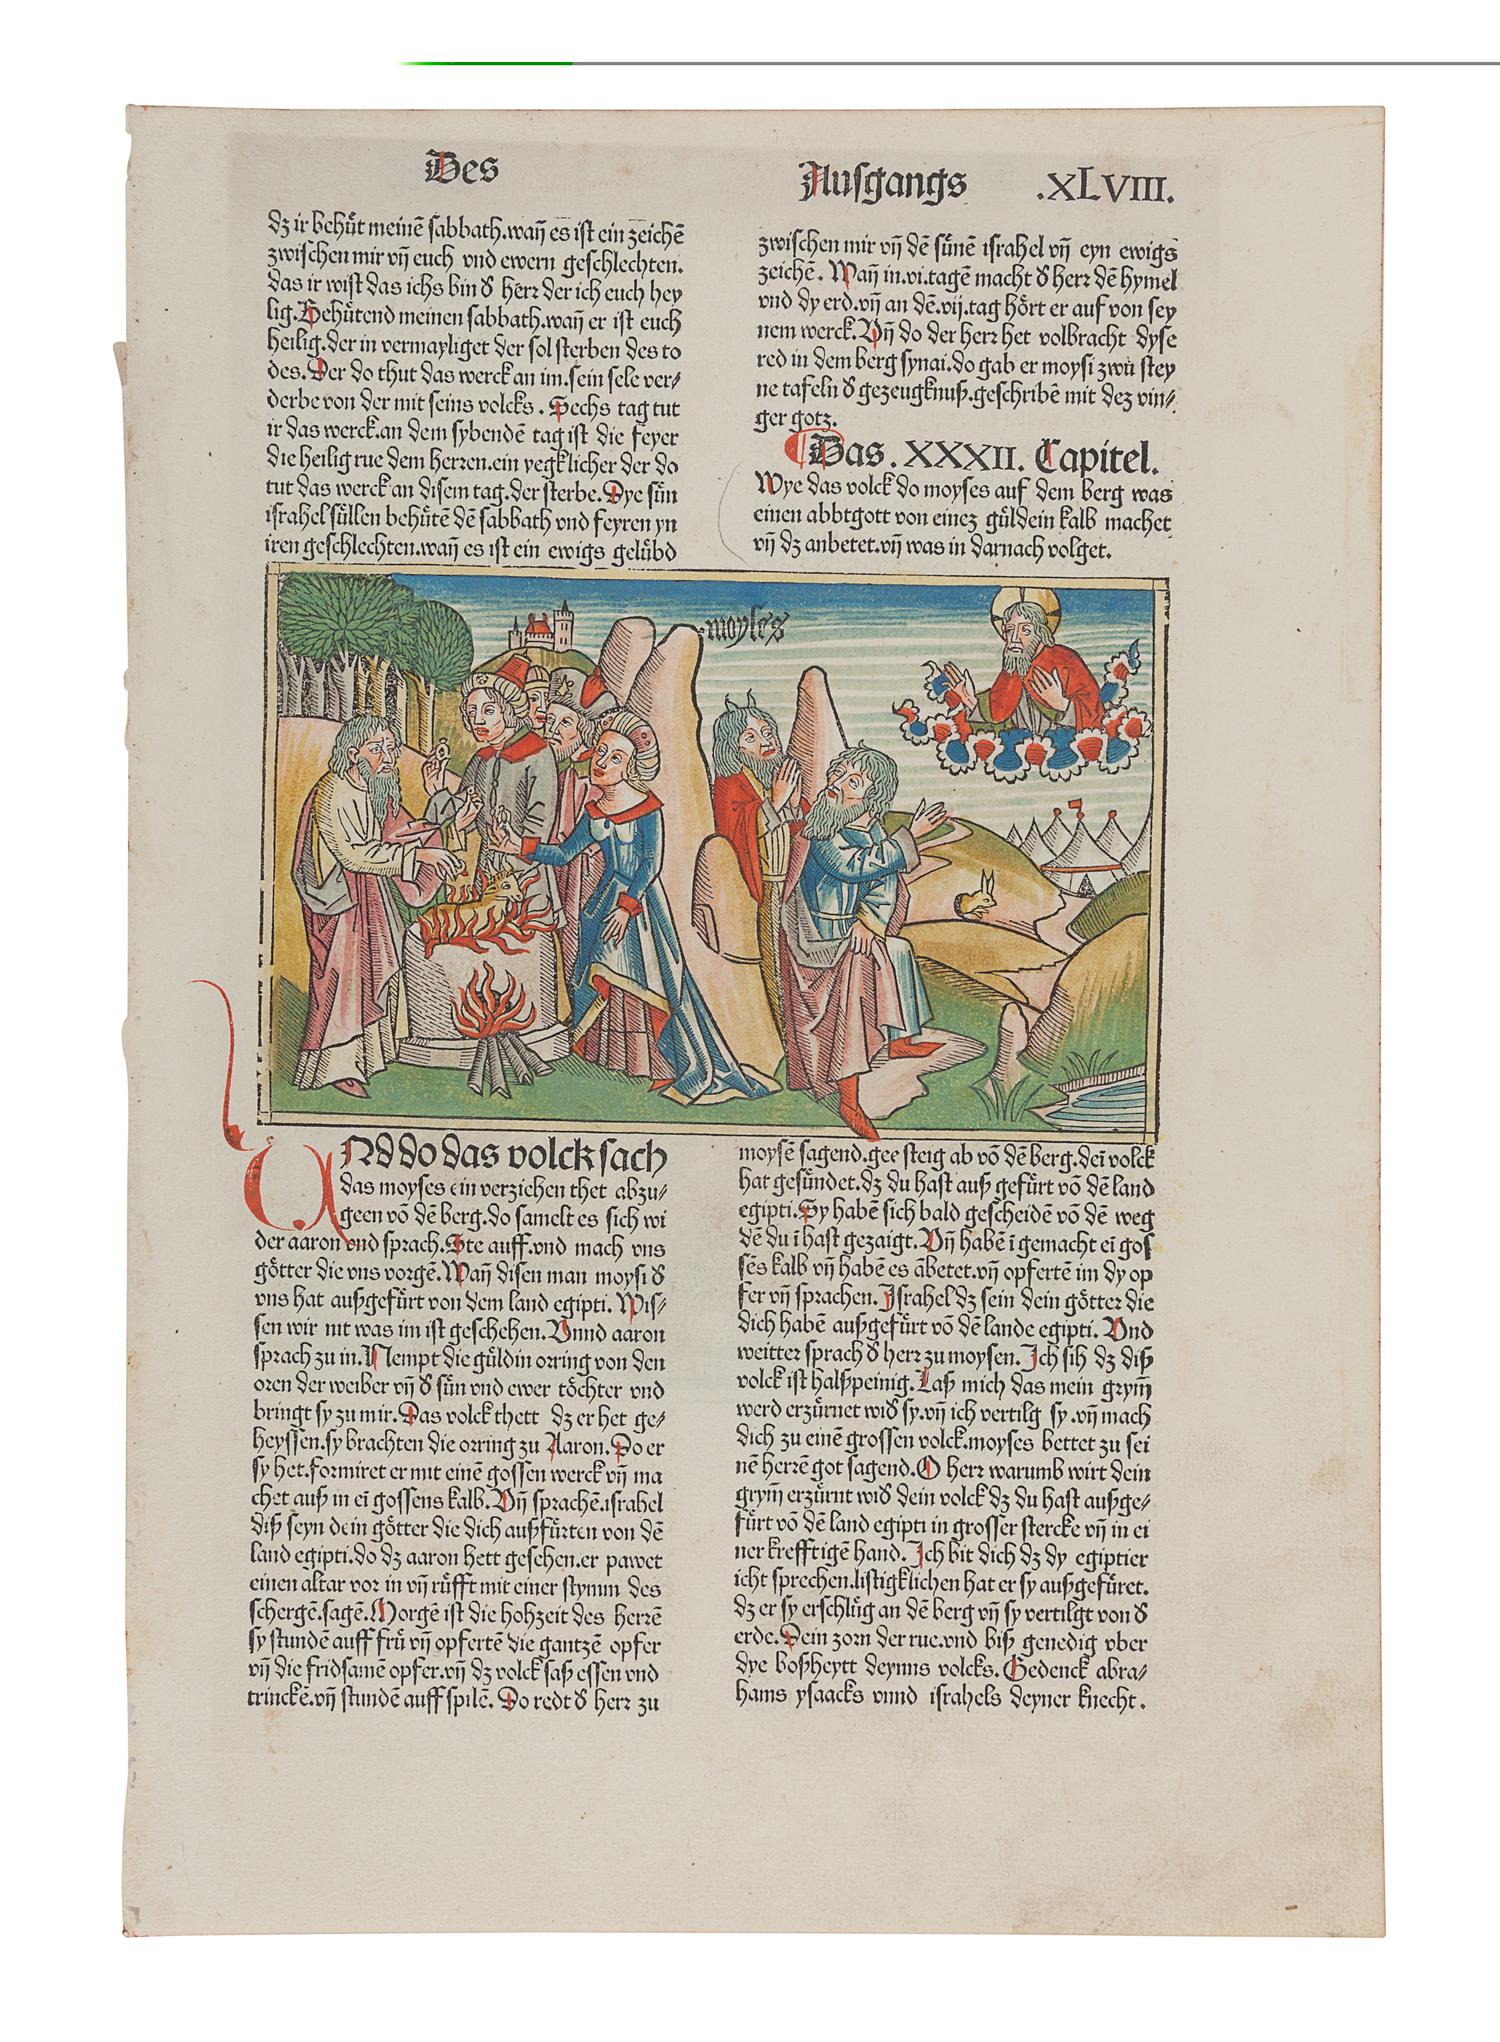 Des
Ausgangs .XLVIII.
dz ir behüt meinē sabbath.wañ es ist ein zeichē
zwischen mir vñ euch vnd ewern geschlechten.
das ir wist das ichs bin d̕ herr der ich euch hey
lig.Behütend meinen sabbath.wañ er ist euch
heilig.der in vermayliget der sol sterben des to
des.Der do thut das werck an im.sein sele ver⸗
derbe von der mit seins volcks. Sechs tag tut
ir das werck.an dem sybendē tag ist die feyer
die heilig rue dem herren.ein yegklicher der do
tut das werck an disem tag.der sterbe.Dye sün
israhel süllen behütē dē sabbath vnd feyren yn
iren geschlechten.wañ es ist ein ewigs gelübd
zwischen mir vñ dē sünē israhel vñ eyn ewigs
zeichē. Wañ in.vi.tagē macht d̕ herr dē hymel
vnd dy erd.vñ an dē.vij.tag hört er auf von sey
nem werck.Vñ do der herr het volbracht dyse
red in dem berg synai.do gab er moysi zwū stey
ne tafeln d̕ gezeugknuß.geschribē mit dez vin⸗
ger gotz.
Das. XXXII. Capitel.
Wye das volck do moyses auf dem berg was
einen abbtgott von einez güldein kalb machet
vñ dz anbetet.vñ was in darnach volget.
moyses
VNd do das volck sach
das moyses ein verziehen thet abzu⸗
geen vō dē berg.do samelt es sich wi
der aaron vnd sprach.Ste auff.vnd mach vns
götter die vns vorgē.Wañ disen man moysi d̕
vns hat außgefürt von dem land egipti. Wis⸗
sen wir nit was im ist geschehen.Vnnd aaron
sprach zu in.Nempt die güldin orring von den
oren der weiber vñ d̕ sün vnd ewer töchter vnd
bringt sy zu mir.Das volck thett dz er het ge⸗
heyssen.sy brachten die orring zu Aaron.Do er
sy het.formiret er mit einē gossen werck vñ ma
chet auß in eī gossens kalb.Vñ sprachē.israhel
diß seyn dein götter die dich außfürten von dē
land egipti.do dz aaron hett gesehen.er pawet
einen altar vor in vñ rüfft mit einer stymm des
schergē.sagē.Morgē ist die hohzeit des herrē
sy stundē auff frü vñ opfertē die gantzē opfer
vñ die fridsamē opfer.vñ dz volck saß essen vnd
trinckē.vñ stundē auff spilē. Do redt d̕ herr zu
moysē sagend.gee steig ab vō dē berg.deī volck
hat gesündet.dz du hast auß gefürt vō dē land
egipti.Sy habē sich bald gescheidē vō dē weg
dē du ī hast gezaigt.Vñ habē ī gemacht eī gos
sēs kalb vñ habē es ābetet.vñ opfertē im dy op
fer vñ sprachen.Israhel dz sein dein götter die
dich habē außgefürt vō dē lande egipti. Vnd
weitter sprach d̕ herr zu moysen. Ich sih dz diß
volck ist halßpeinig.Laß mich das mein grym̄
werd erzürnet wid̕ sy.vñ ich vertilg sy.vñ mach
dich zu einē grossen volck.moyses bettet zu sei
nē herrē got sagend.O herr warumb wirt dein
grym̄ erzürnt wid̕ dein volck dz du hast außge⸗
fürt vō dē land egipti in grosser stercke vñ in ei
ner krefftigē hand. Ich bit dich dz dy egiptier
icht sprechen.listigklichen hat er sy außgefüret.
dz er sy erschlüg an dē berg vñ sy vertilgt von d̕
erde.Dein zorn der rue.vnd biß genedig vber
dye boßheytt deynns volcks. Gedenck abra⸗
hams ysaacks vnnd israhels deyner knecht.